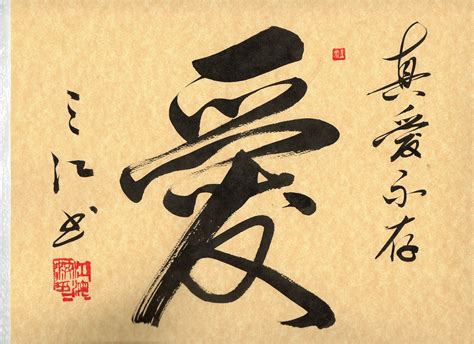 真愛永存
愛
三江书